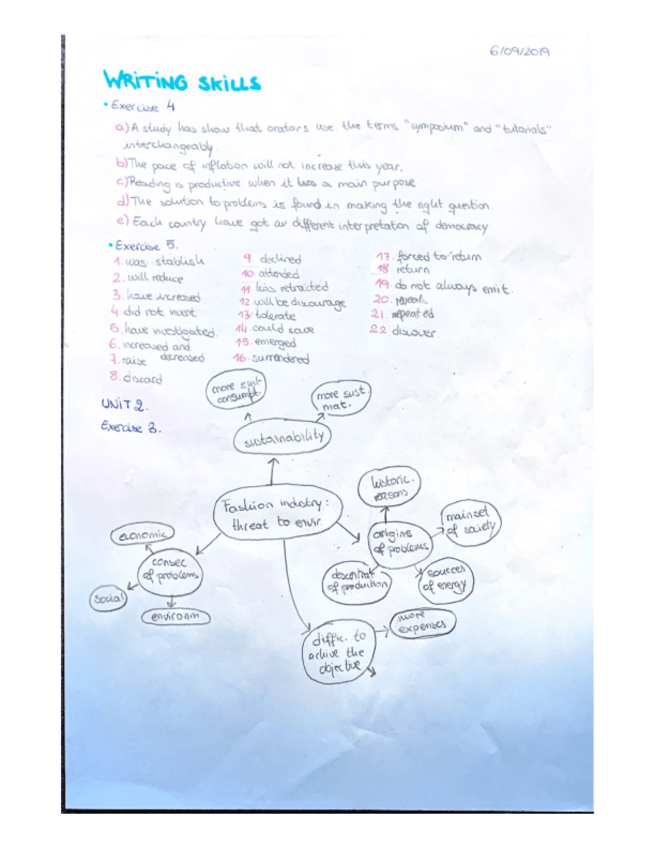 6/09/2019
WRITING SKILLS
• Exercise 4
a) A study has show that orators use the terms "symposium" and "tutorials"
interchangeably.
b) The pace of inflation will not increase this year.
c) Reading is productive when it has a main purpose
d) The solution to problems is found in making the right question.
e) Each country have got an different interpretation of democracy
• Exercise 5.
1. was stablish
2. will reduce
3. have increased
4. did not invert
5. have investigated.
6. increased and
decreased
7. raise
8. discard
9. declined
10. attended
11 has retracted
12 will be discourage
13 tolerate
14. could cave
15. emerged
16. surrendered
17. forced to return
18 return
19 do not always emit.
20. reveal
21. repeated
22 discover
UNIT 2.
Exercise 3.
more sust.
consumpt.
more sust.
mat.
sustainability
Fashion industry:
threat to envir.
historic.
reasons
origins
of problems
mainset
of society
sources
of energy
of production
economic
consec
of problems
social
environm
diffic. to
achive the
objective
more
expenses